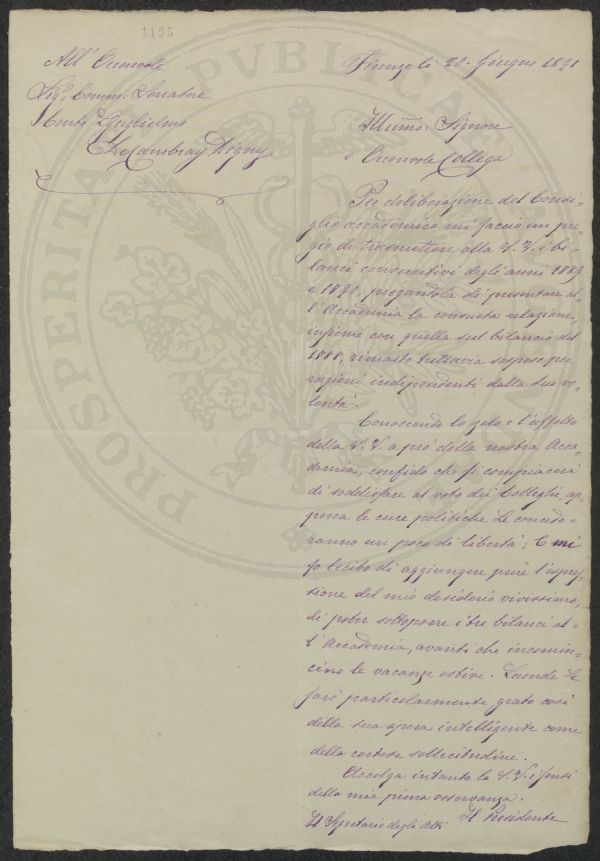 1195
All' Onorevole
Sig. Comm. Senatore
Conte Guglielmo
De Cambray Digny
Firenze li 20. Giugno 1891
Illmo. Signore
e Onorevole Collega
Per deliberazione del Consi-
glio accademico mi faccio un pre-
gio di trasmettere alla S. V. i bi-
lanci consuntivi degli anni 1889
e 1890, pregandola di presentare al-
l'Accademia la consueta relazione,
insieme con quella sul bilancio del
1888, rimasto tuttavia sospeso per
ragioni indipendenti dalla sua vo-
lontà.
Conoscendo lo zelo e l'affetto
della S. V. a pró della nostra Acca-
demia, confido che si compiacerà
di soddisfare al voto dei Colleghi, ap-
pena le cure politiche Le concede-
ranno un poco di libertà; E mi
fo lecito di aggiungere pure l'espres-
sione del mio desiderio vivissimo,
di poter sottoporre i tre bilanci al-
l'Accademia, avanti che incomin-
cino le vacanze estive. Laonde Le
sarò particolarmente grato così
della sua opera intelligente come
della cortese sollecitudine.
Accolga intanto la S. V. i sensi
della mia piena osservanza.
Il Segretario degli Atti Il Presidente
PROSPERITÀ PVBLICA